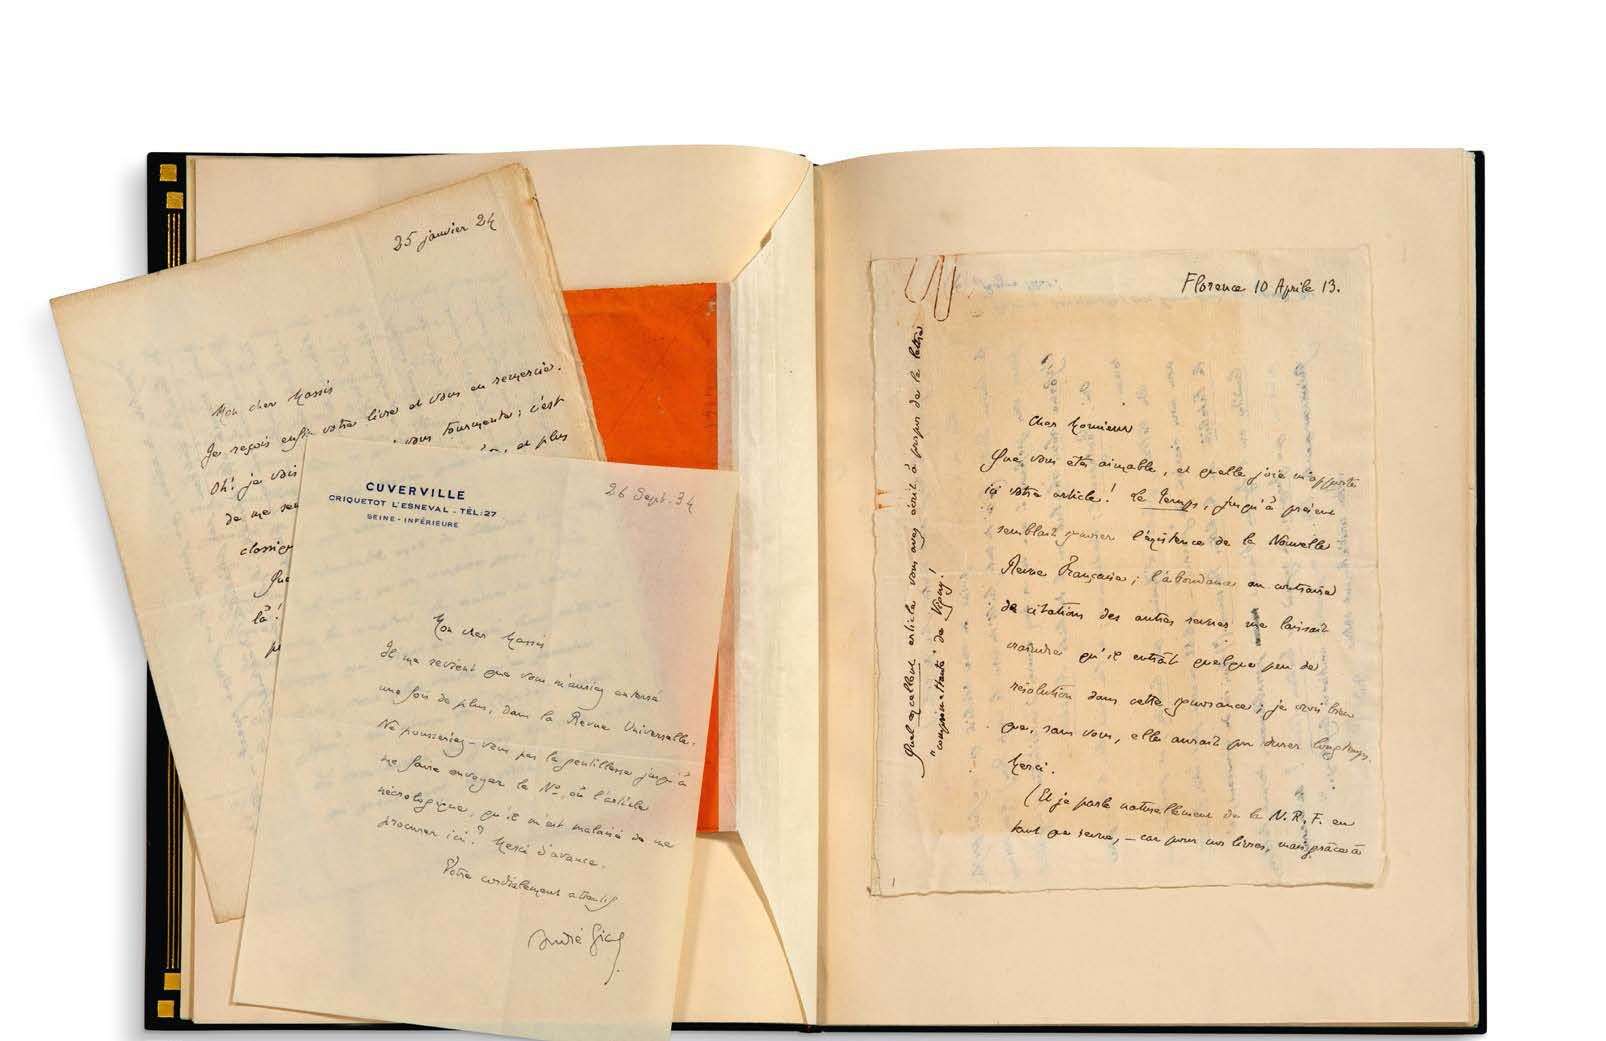 25 janvier 24
Mon cher Massis
Je reçois enfin votre livre et vous en remercie.
Oh! je vois vous tourmente; c'est
de me et plus
classiq
Que
là!
CUVERVILLE
CRIQUETOT L'ESNEVAL - TÉL: 27
SEINE - INFÉRIEURE
26 Sept. 34
Mon cher Massis
Il me revient que vous m'auriez enterré
une fois de plus, dans la Revue Universelle.
Ne pousseriez-vous pas la gentillesse jusqu'à
me faire envoyer le No où l'article
nécrologique, qu'il m'est malaisé de me
procurer ici? Merci d'avance.
Votre cordialement attentif
André Gide
Florence 10 Aprile 13.
Cher Monsieur
Que vous êtes aimable, et quelle joie m'apporte
ici votre article! Le Temps, jusqu'à présent
semblait ignorer l'existence de la Nouvelle
Revue Française; l'abondance au contraire
de citations des autres revues me laissait
craindre qu'il entrât quelque peu de
résolution dans cette ignorance; je crois bien
que, sans vous, elle aurait pu durer longtemps.
Merci.
(Et je parle naturellement de la N.R.F. en
tant que revue, – car pour nos livres, mais grâce à
Quel excellent article vous avez écrit à propos de la lettre
"compromettante" de Vigny!
1